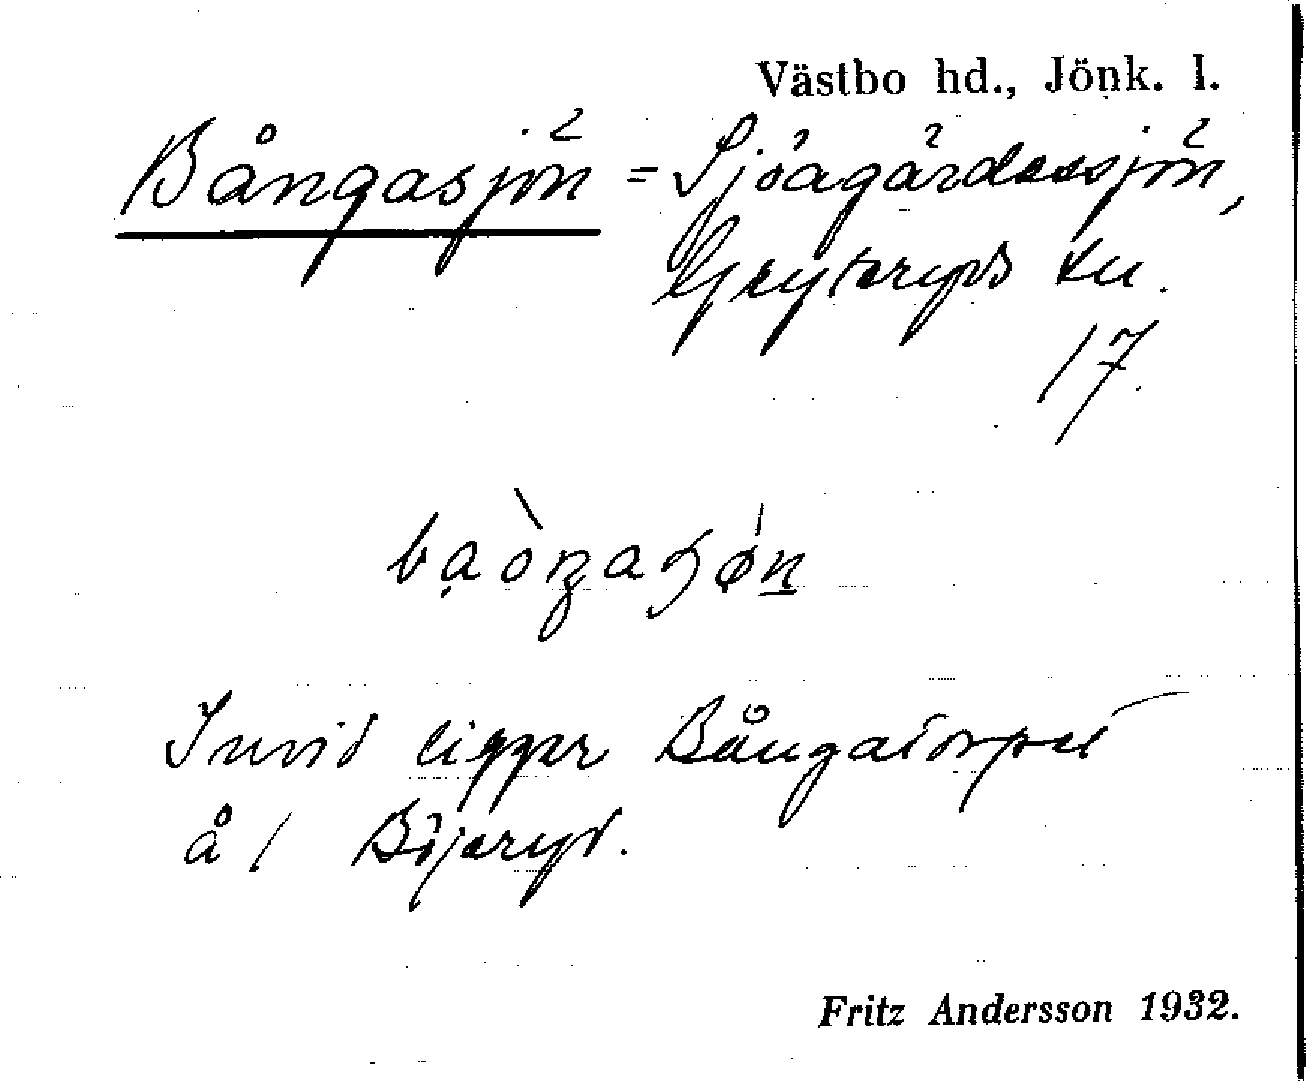 Västbo hd., Jönk. l.
Bångasjön = Sjöagärdessjön,
Gryteryds sn.
17.
Invid ligger Bångatorpet
å 1 Böjeryd.
Fritz Andersson 1932.